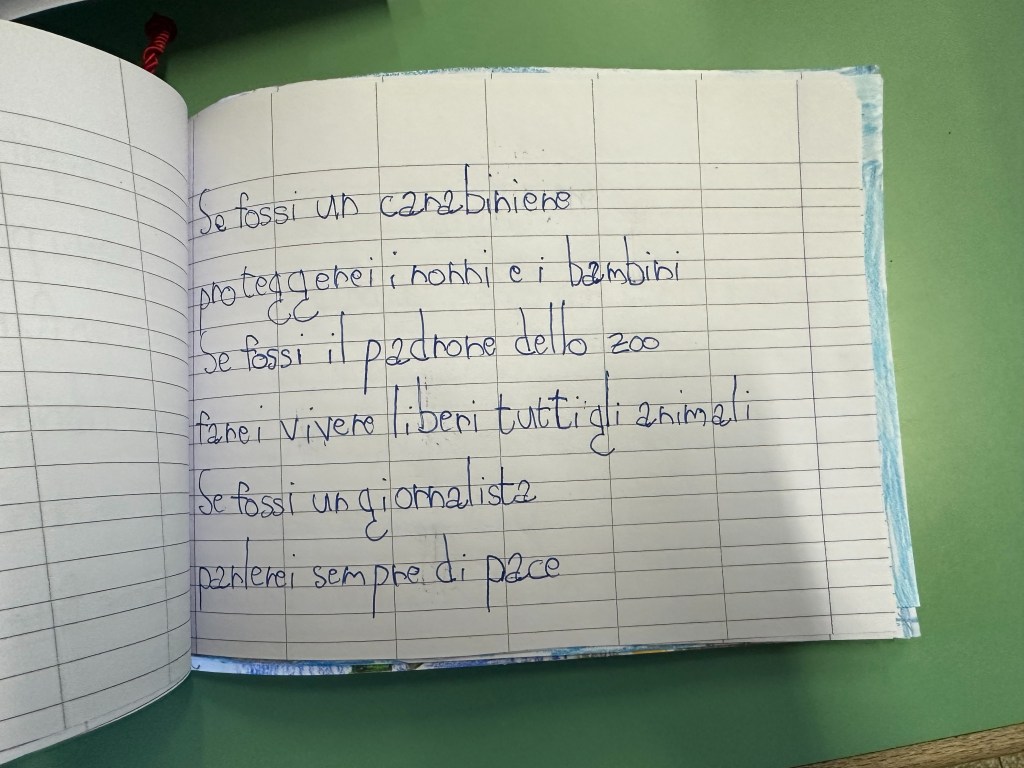 Se fossi un carabiniere
proteggerei i nonni e i bambini
Se fossi il padrone dello zoo
farei vivere liberi tutti gli animali
Se fossi un giornalista
parlerei sempre di pace